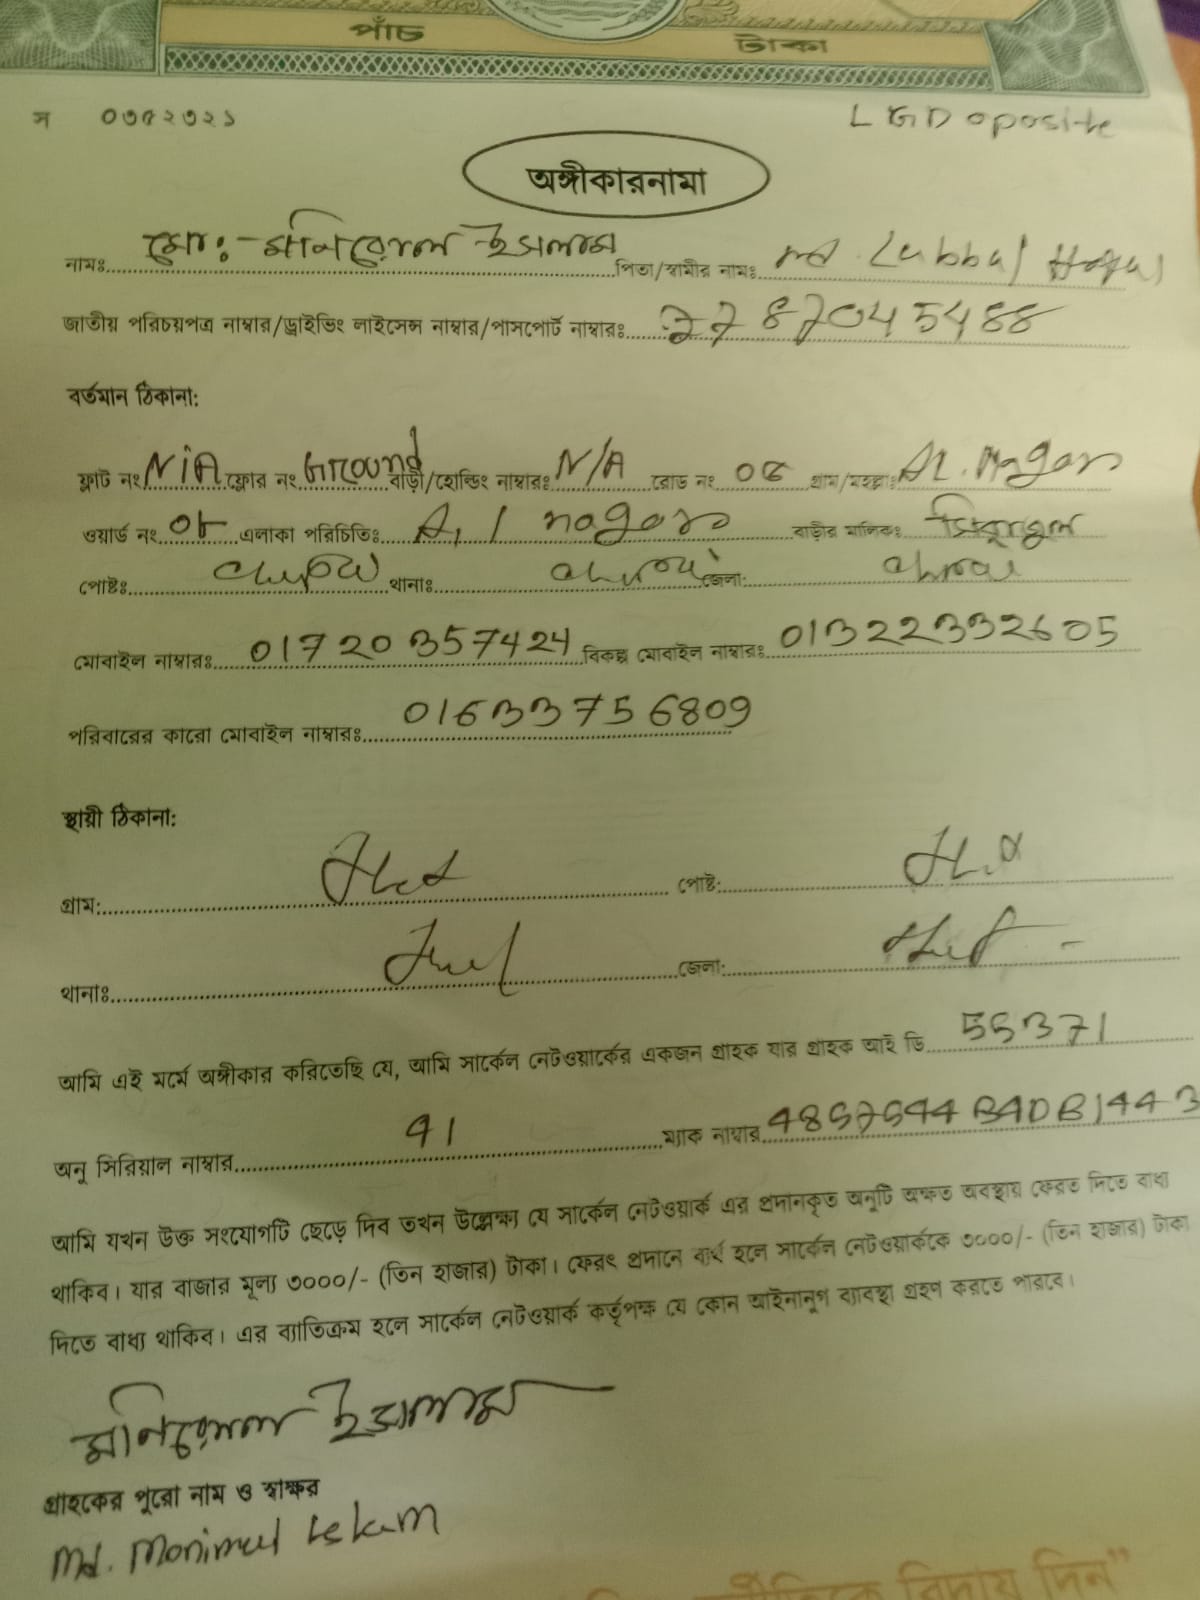 পাঁচ টাকা
স ০৩৫২৩২১
LGD oposite
অঙ্গীকারনামা
নামঃ মো:- মনিরুল ইসলাম পিতা/স্বামীর নাম: md.
জাতীয় পরিচয়পত্র নাম্বার/ড্রাইভিং লাইসেন্স নাম্বার/পাসপোর্ট নাম্বারঃ 7787045488
বর্তমান ঠিকানা:
ফ্লাট নং N/A ফ্লোর নং Ground বাড়ী/হোল্ডিং নাম্বারঃ N/A রোড নং 08 গ্রাম/মহল্লাঃ AL. Nagor
ওয়ার্ড নং 08 এলাকা পরিচিতিঃ A, l nagoro বাড়ীর মালিকঃ
পোষ্টঃ থানাঃ জেলা:
মোবাইল নাম্বারঃ 01720357424 বিকল্প মোবাইল নাম্বারঃ 01322332605
পরিবারের কারো মোবাইল নাম্বারঃ 01633756809
স্থায়ী ঠিকানা:
গ্রাম: পোষ্ট:
থানাঃ জেলা:
আমি এই মর্মে অঙ্গীকার করিতেছি যে, আমি সার্কেল নেটওয়ার্কের একজন গ্রাহক যার গ্রাহক আই ডি 55371
অনু সিরিয়াল নাম্বার 91 ম্যাক নাম্বার
আমি যখন উক্ত সংযোগটি ছেড়ে দিব তখন উল্লেক্ষ্য যে সার্কেল নেটওয়ার্ক এর প্রদানকৃত অনুটি অক্ষত অবস্থায় ফেরত দিতে বাধ্য
থাকিব। যার বাজার মূল্য ৩০০০/- (তিন হাজার) টাকা। ফেরৎ প্রদানে ব্যর্থ হলে সার্কেল নেটওয়ার্ককে ৩০০০/- (তিন হাজার) টাকা
দিতে বাধ্য থাকিব। এর ব্যাতিক্রম হলে সার্কেল নেটওয়ার্ক কর্তৃপক্ষ যে কোন আইনানুগ ব্যাবস্থা গ্রহণ করতে পারবে।
মনিরুল ইসলাম
গ্রাহকের পুরো নাম ও স্বাক্ষর
Md. Monirul Islam
বিদায় দিন"